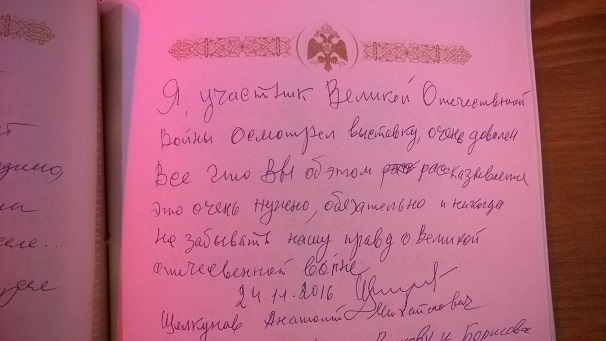 Я, участник Великой Отечественной
Войны осмотрел выставку, очень довален
Все что Вы об этом рассказываете
это очень нужно, обязательно и никогда
не забывать нашу правд о Великой
отечесвенной войне
24-11-2016
Щелкунав Анатолий Михайлович
и Борисов